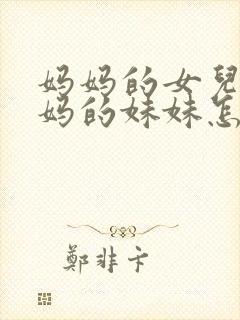 妈妈的女兒
妈的妹妹怎
鄭非卞